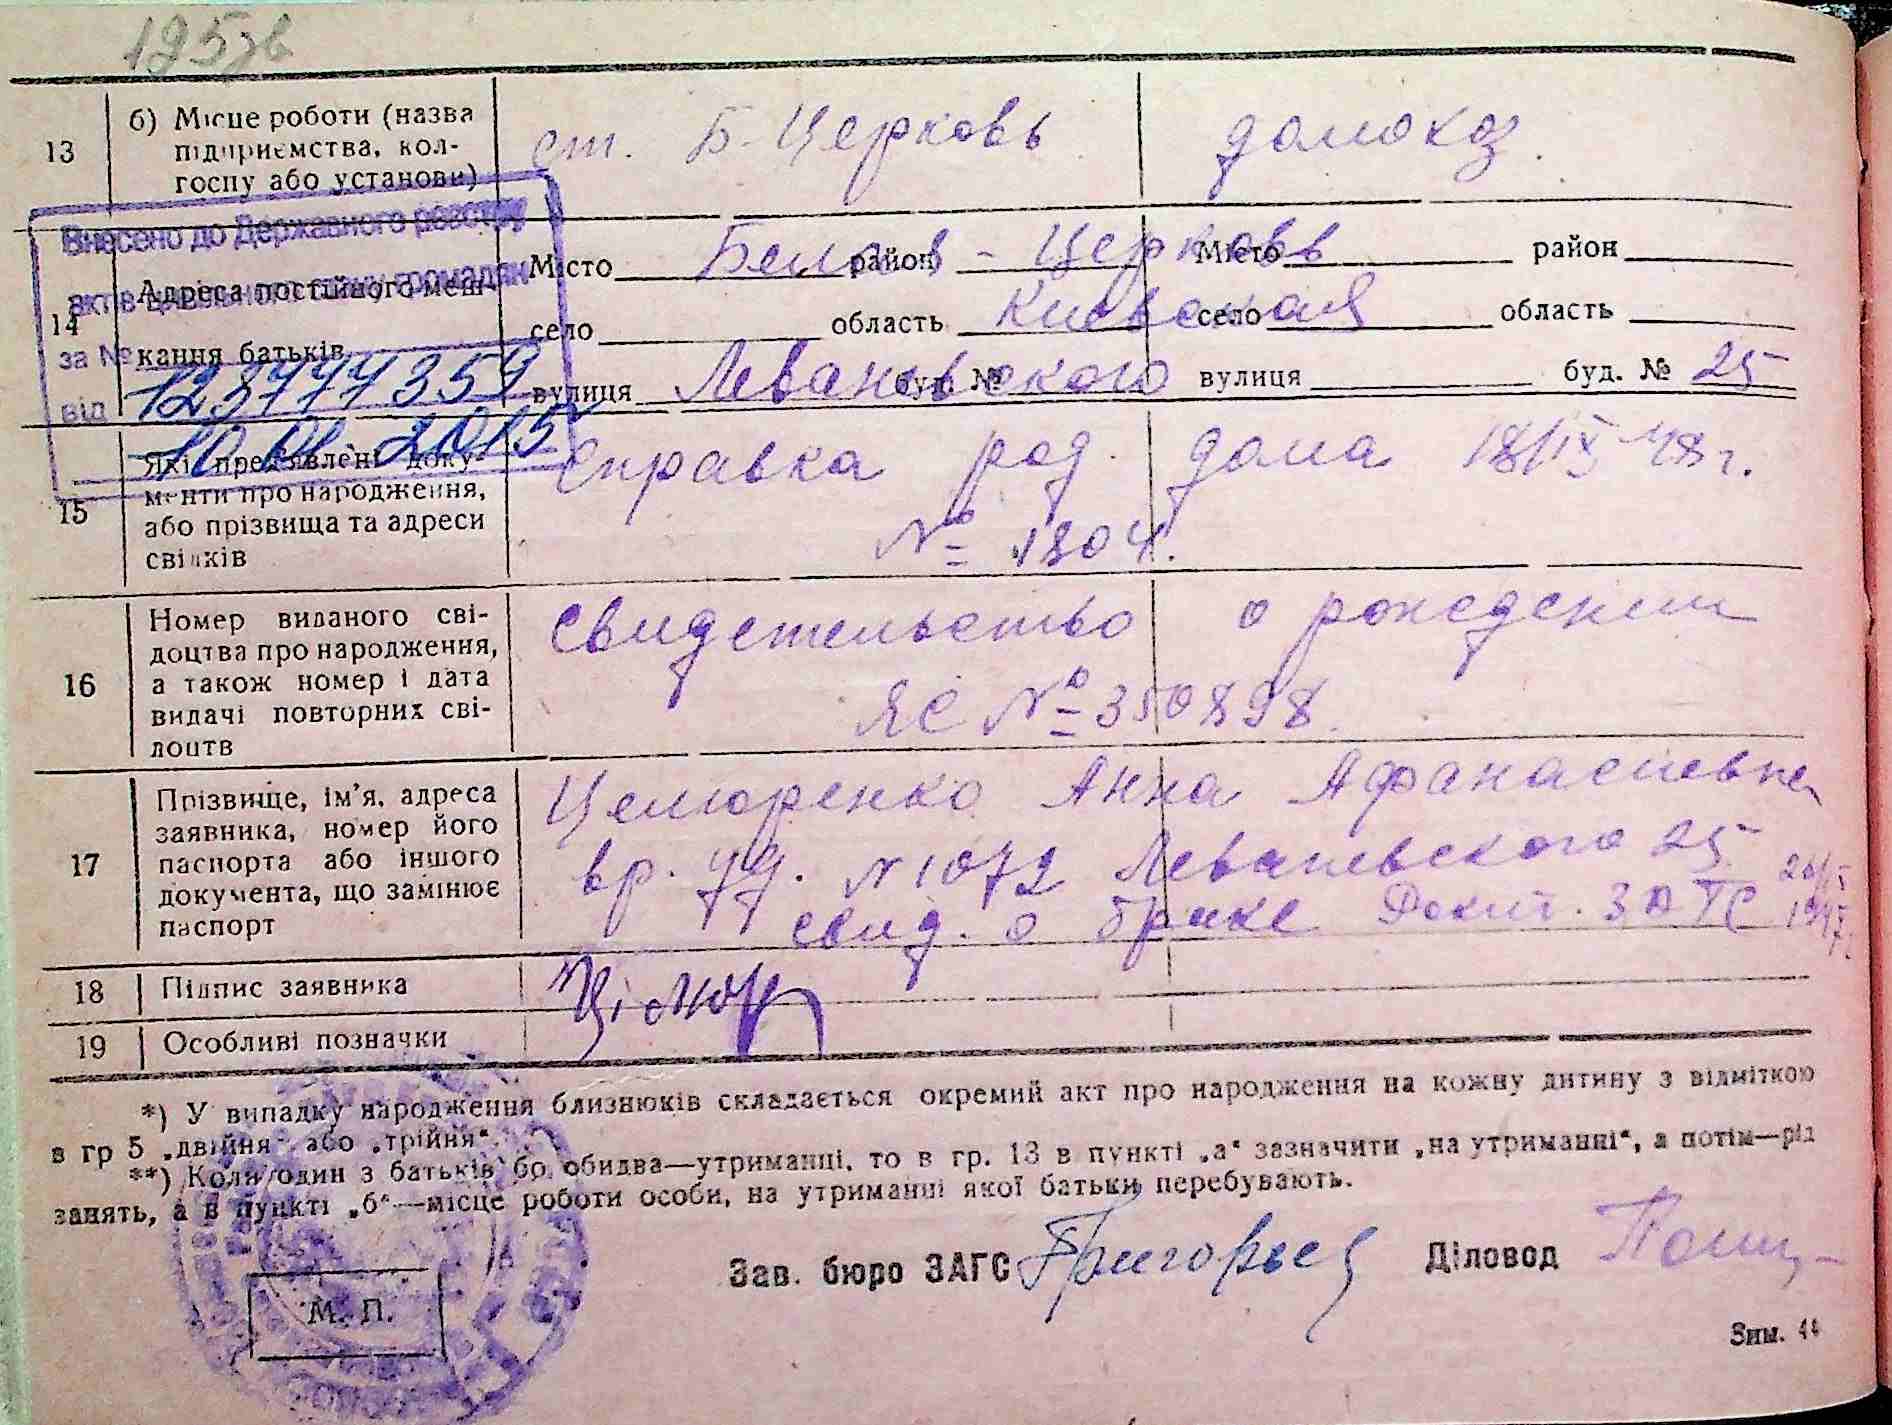 195зв
13 б) Місце роботи (назва підприємства, колгоспу або установи) ст. Б-Церковь домохоз.
Внесено до Державного реєстру
актів цивільного стану громадян
за № 12377359
від 10.01.2015
14 Адреса постійного мешкання батьків
Місто Белая район - Церковь Місто район
село область Киевская село область
вулиця Леваневского буд. № вулиця буд. № 25
15 Які пред'явлені документи про народження, або прізвища та адреси свідків
Справка род. дома 18/IX 48 г.
№ 1304.
16 Номер виданого свідоцтва про народження, а також номер і дата видачі повторних свідоцтв
Свидетельство о рождении
ЯС № 350898.
17 Прізвище, ім'я, адреса заявника, номер його паспорта або іншого документа, що замінює паспорт
Целюренко Анна Афанасиевна
вр. уд. N 1072 Леваневского 25
свид. о браке ЗАГС 1947
18 Підпис заявника Цілюр
19 Особливі позначки
*) У випадку народження близнюків складається окремий акт про народження на кожну дитину з відміткою
в гр 5 „двійня" або „трійня".
**) Коли один з батьків бо обидва—утриманці, то в гр. 13 в пункті „а" зазначити „на утриманні", а потім—рід
занять, а в пункті „б"—місце роботи особи, на утриманні якої батьки перебувають.
Зав. бюро ЗАГС Григорьев Діловод
М. П.
Зим. 44